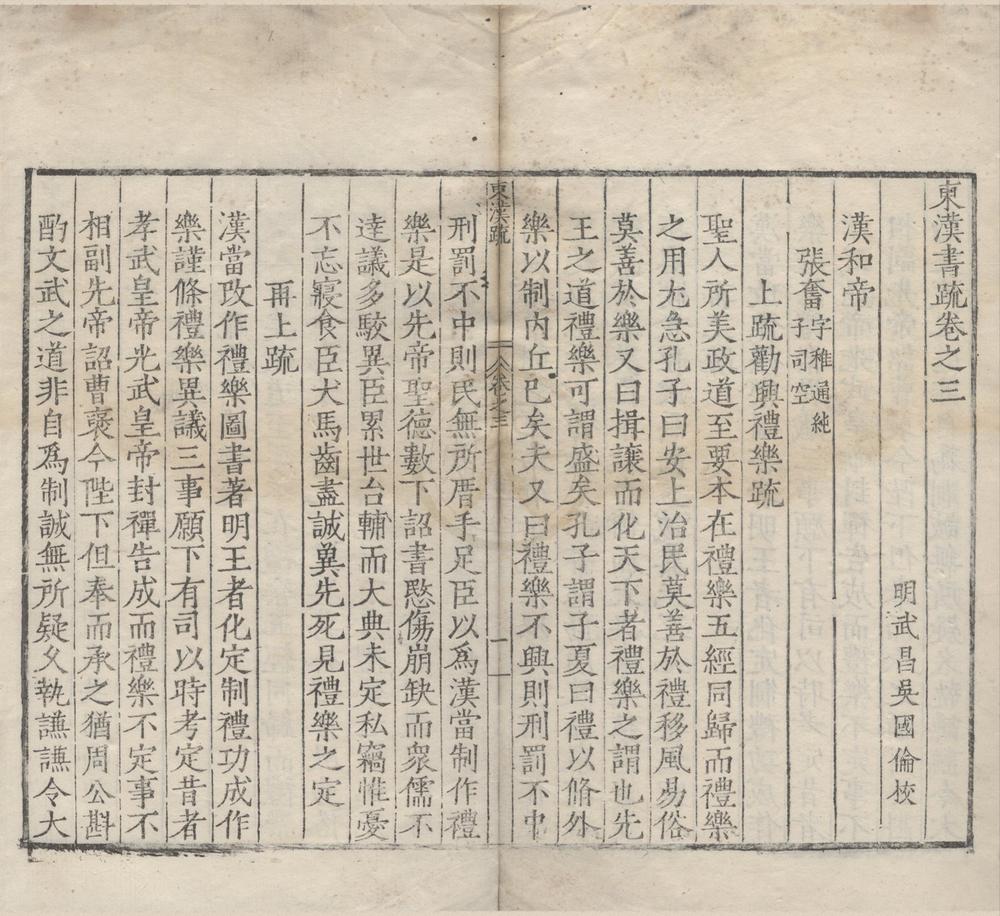 東漢書疏卷之三
明武昌吳國倫校
漢和帝
張奮字稚通純
子司空
上疏勸興禮樂疏
聖人所美政道至要本在禮樂五經同歸而禮樂
之用尤急孔子曰安上治民莫善於禮移風易俗
莫善於樂又曰揖讓而化天下者禮樂之謂也先
王之道禮樂可謂盛矣孔子謂子夏曰禮以脩外
樂以制內丘已矣夫又曰禮樂不興則刑罰不中
東漢疏
卷之三
一
刑罰不中則民無所厝手足臣以爲漢當制作禮
樂是以先帝聖德數下詔書愍傷崩缺而衆儒不
達議多駮異臣累世台輔而大典未定私竊惟憂
不忘寢食臣犬馬齒盡誠冀先死見禮樂之定
再上疏
漢當攺作禮樂圖書著明王者化定制禮功成作
樂謹條禮樂異議三事願下有司以時考定昔者
孝武皇帝光武皇帝封禪告成而禮樂不定事不
相副先帝詔曹褒今陛下但奉而承之猶周公斟
酌文武之道非自爲制誠無所疑乆執謙謙令大